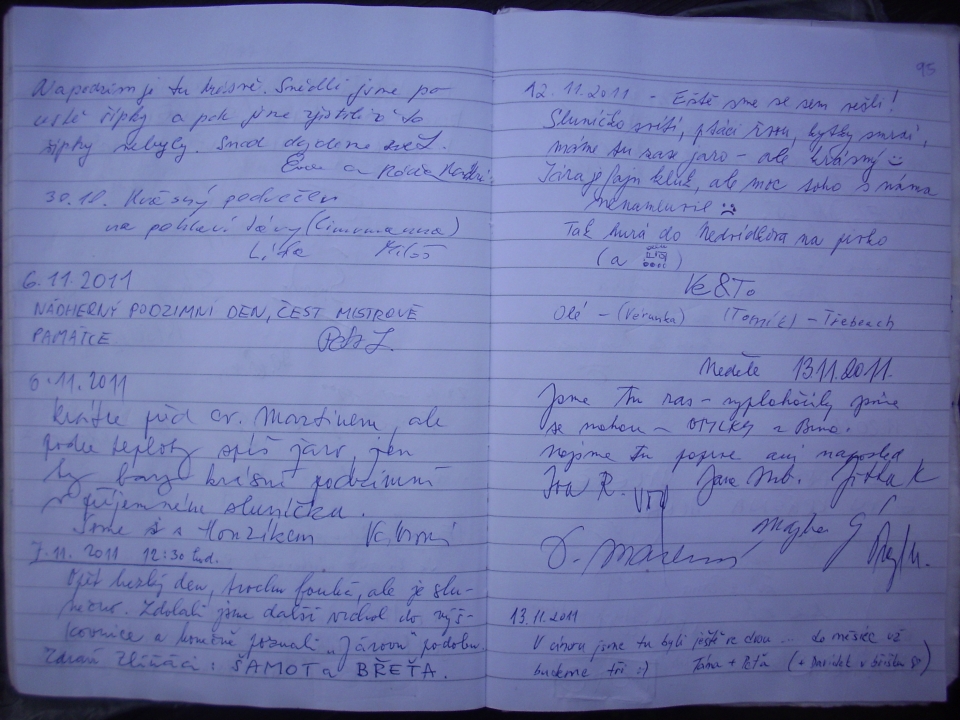 Na podzim je tu krásně. Snědli jsme po
cestě šípky a pak jsme zjistili že to
šípky nebyly. Snad dojdeme zpět.
Eva a
30.10. Krásný podvečer
na pohlaví Járy (Cimrmanna)
Litka Miloš
6.11.2011
NÁDHERNÝ PODZIMNÍ DEN, ČEST MISTROVĚ
PAMÁTCE Petr L.
6.11.2011
Krátce před sv. Martinem, ale
podle teploty spíš jaro, jen
ty barvy krásně podzimní
v příjemném sluníčku.
Jsme tu s Honzíkem
7.11. 2011 12:30 hod.
Opět hezký den, trochu fouká, ale je slu-
nečno. Zdolali jsme další vrchol do
a konečně poznali "Járovu" podobu.
Zdraví Zlíňáci: ŠAMOT a BŘEŤA.
95
12.11.2011 - Eště sme se sem vešli!
Sluníčko svítí, ptáci řvou, kytky smrdí,
máme tu zase jaro - ale krásný
Jára je fajn kluk, ale moc toho s náma
nenamluvil
Tak hurá do Nedvídkova na pivko
(a )
Ve&To
Olé - (Verunka) (Tomík) - Třebeach
Neděle 13.11.2011.
Jsme tu zas - vyplahočily jsme
se nahoru - OTYLKY z Brna.
Nejsme tu poprvé ani naposled
Iva R. Jana Jitka K
Majka
13.11.2011
V únoru jsme tu byli ještě ve dvou ... za měsíc už
budeme tři :) Táňa + Peťa (+ Davídek v bříšku)